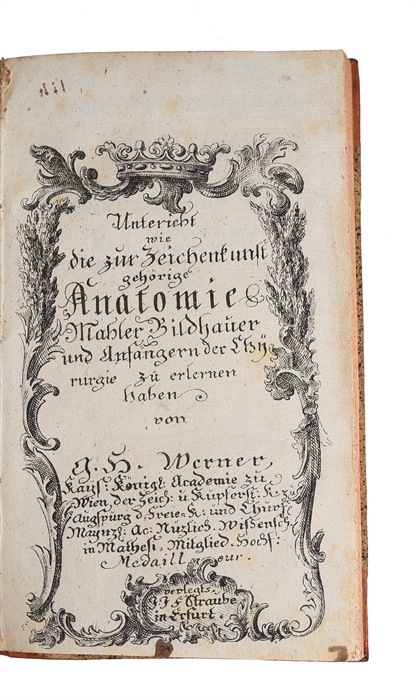 Untericht
wie
die zur Zeichenkunst
gehörige
Anatomie
Mahler Bildhauer
und Anfängern der Chÿ-
rurgie zu erlernen
haben
von
G. H. Werner,
Kays: Königl: Academie zu
Wien, der Zeich: u Kupferst: K. zu
Augspurg d. Freie. K: und Churf:
Maynz: Ac: Nüzlich. Wissensch.
in Mathesi, Mitglied. Hochf:
Medaill our.
verlegts
Straube
in Erfurt.